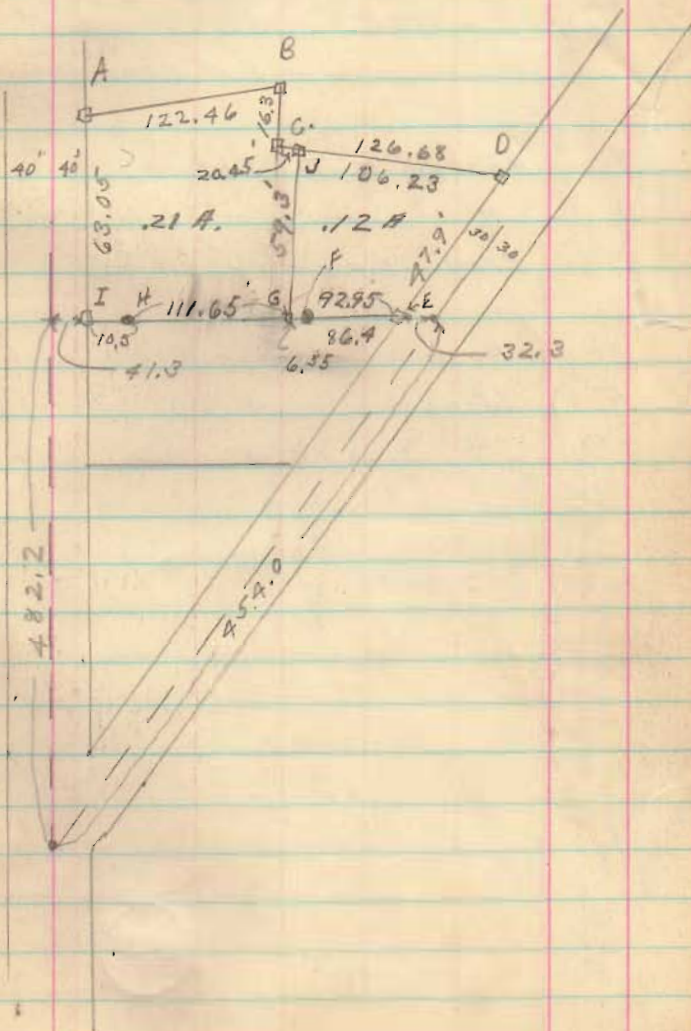 B
A
122.46
16.3'
C.
126.68
D
40' 40'
20.45
J
106.23
63.05'
.21 A.
59.3'
.12 A
47.9'
30 30
F
I H 111.65 G 92.95 E
10.5
86.4
6.55
32.3
41.3
482.2
454.0